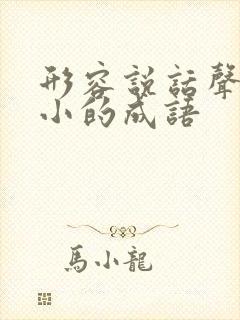 形容說話聲
小的成語
馬小龍